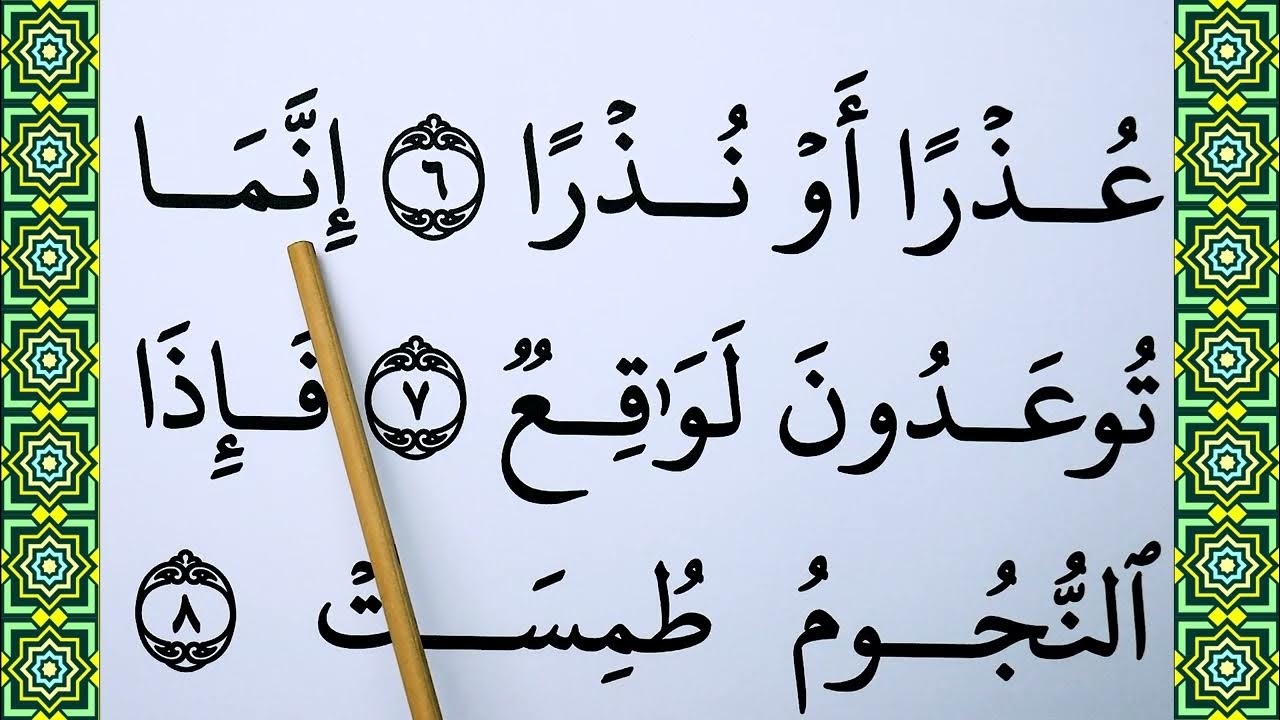 عُذۡرًا أَوۡ نُذۡرًا ٦ إِنَّمَا
تُوعَدُونَ لَوَٰقِعٌ ٧ فَإِذَا
ٱلنُّجُومُ طُمِسَتۡ ٨